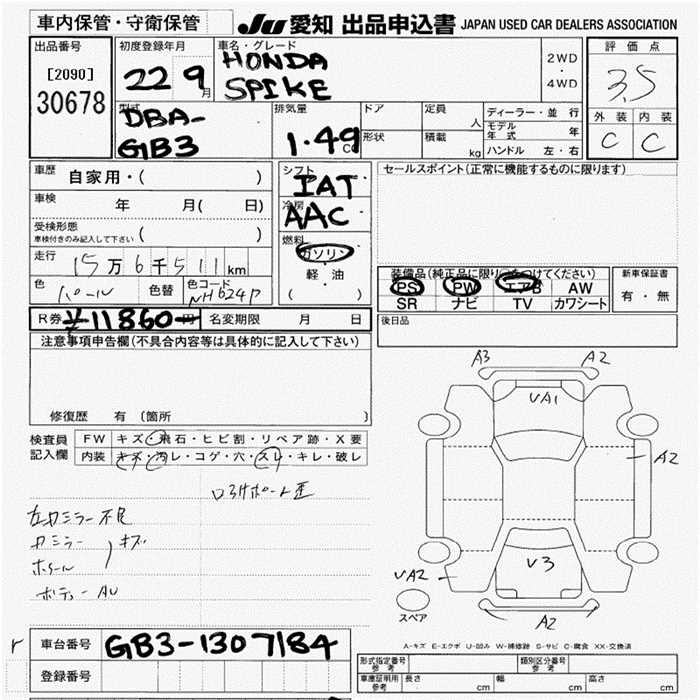 車内保管・守衛保管 JU 愛知 出品申込書 JAPAN USED CAR DEALERS ASSOCIATION
出品番号 初度登録年月 車名・グレード 評価点
[2090] 22 9月 HONDA 2WD
・
30678 SPIKE 4WD 3.5
型式 排気量 ドア 定員 ディーラー・並行 外装 内装
DBA- 人 モデル年式 年 C C
GB3 1.49 CC 形状 積載 kg ハンドル 左・右
車歴 自家用・( ) シフト セールスポイント(正常に機能するものに限ります)
IAT
車検 年 月( 日) 冷房 AAC
受検形態
車検付きのみ記入して下さい ( ) 燃料
走行 15万6千511km ガソリン 装備品(純正品に限り○をつけてください) 新車保証書
軽・油 PS PW エアB AW
色 パール 色替 色コード NH624P ( ) SR ナビ TV カワシート 有・無
R券 ¥11860- 円 名変期限 月 日 後日品
注意事項申告欄(不具合内容等は具体的に記入して下さい)
A3 A2
VA1
修復歴 有 (箇所 )
検査員 FW キズ・飛石・ヒビ割・リペア跡・X要
記入欄 内装 キズ・汚レ・コゲ・穴・スレ・キレ・破レ
A2
左カミラー不良
カミラー キズ
ホイール V3
ボディーAU VA2
スペア A2
車台番号 GB3-1307184 A-キズ E-エクボ U-凹み W-補修跡 S-サビ C-腐食 XX-交換済
登録番号 型式指定番号 参考 類別区分番号 参考
車庫証明用 参考 長さ cm 幅 cm 高さ cm